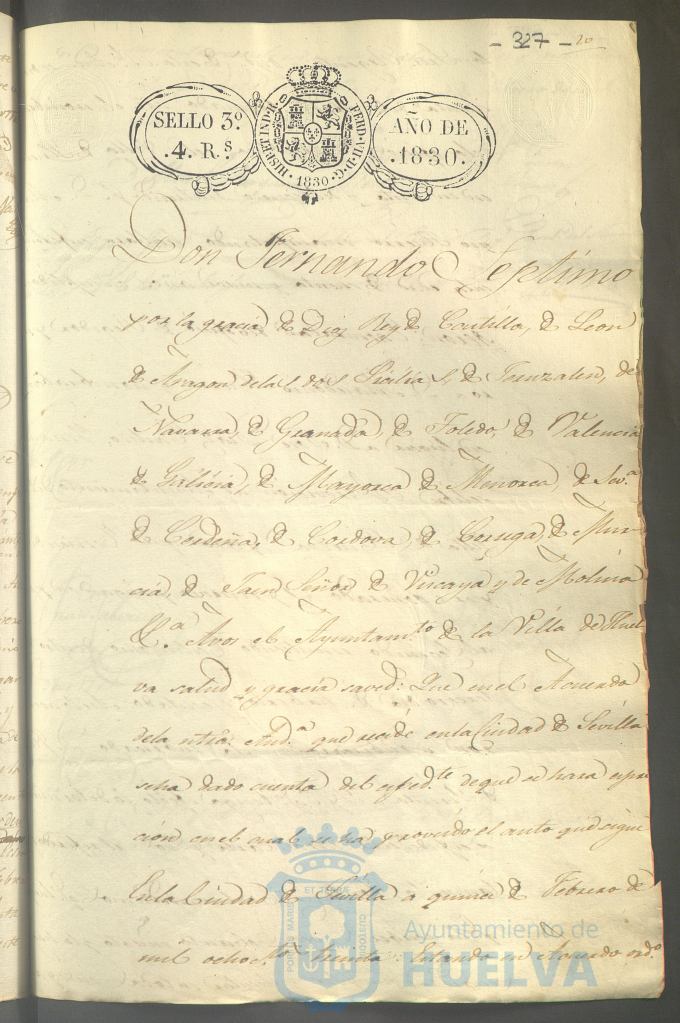 - 327 - 20
SELLO 3º
.4. R.s
HISP.ET IND.R. FERD.VII.D.G.
.1830.
AÑO DE
.1830.
Don Fernando Septimo
por la gracia de Dios Rey de Castilla, de Leon
de Aragon, de las dos Sicilias, de Jeruzalen, de
Navarra de Granada, de Toledo, de Valencia
de Galicia, de Mayorca de Menorca, de Sev.a
de Cerdeña, de Cordova, de Corsega, de Mur-
cia, de Jaen Señor de Viscaya y de Molina
&.a A vos el Ayuntam.to de la Villa de Huel
va salud y gracia saved: Que en el Acuerdo
de la ntra. Aud.a que recide en la Ciudad de Sevilla
se ha dado cuenta del exped.te de que se hara expre
cion en el cual se ha proveido el auto que sigue
En la Ciudad de Sevilla a quince de Febrero de
mil ochoc.tos treinta: Estando en Acuerdo ord.o
PORTUS MARIS
ET TERRE
CUSTODIA
Ayuntamiento de
HUELVA